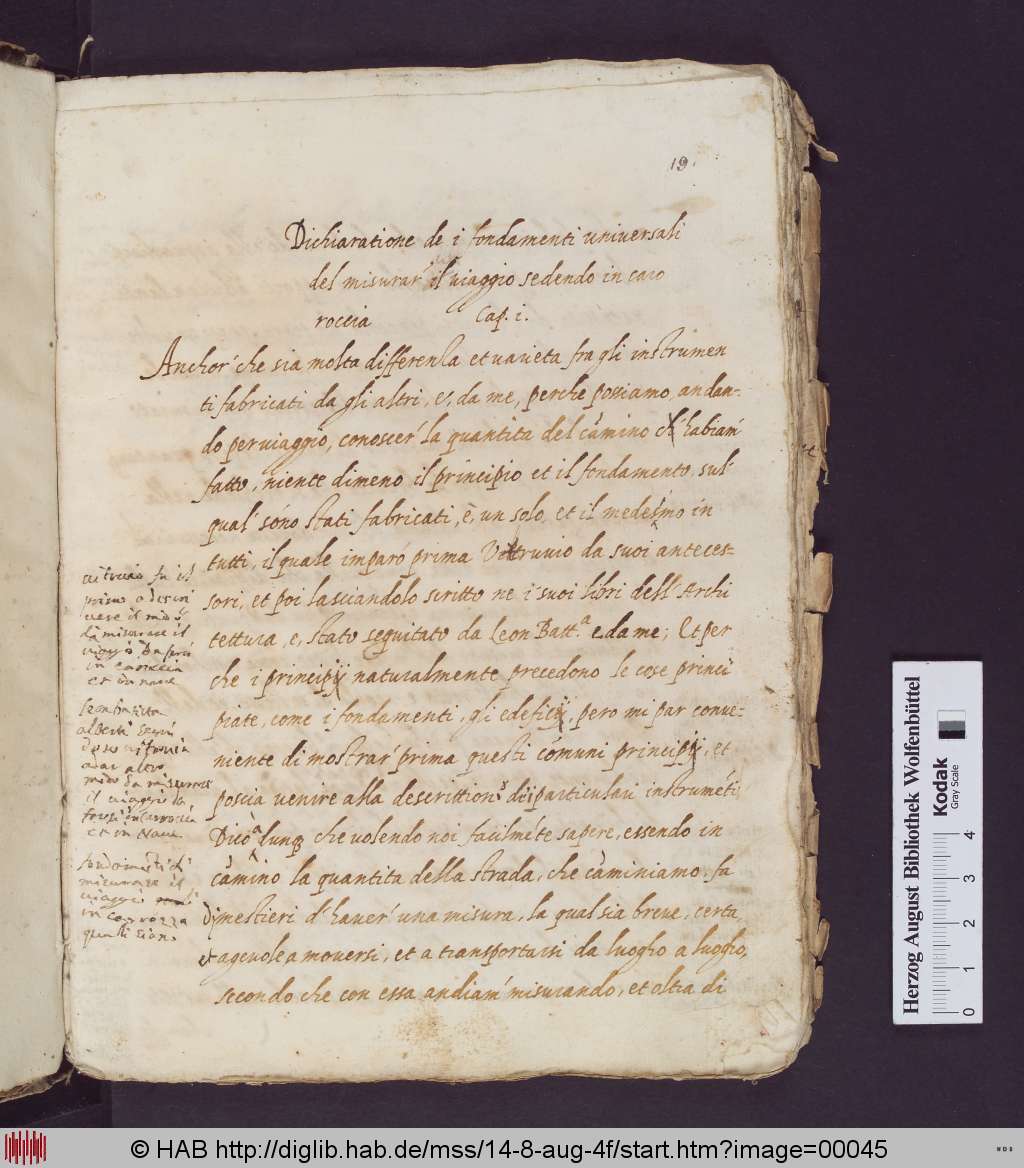 19
Dichiaratione de i fondamenti universali
del misurar' il viaggio sedendo in caro
roccia Cap. i.
Anchor' che sia molta differenza et varieta fra gli instrumen
ti fabricati da gli altri, e, da me, perche possiamo, andan-
do per viaggio, conoscer' la quantita del camino ch' habiam'
fatto, niente dimeno il principio et il fondamento, sul'
qual' sono stati fabricati, è, un solo, et il medesimo in
tutti, il quale imparò prima Vittruvio da suoi anteces-
sori, et poi lasciandolo scritto ne i suoi libri dell' Archi
tettura, e, stato seguitato da Leon Batt.a e da me; Et per
che i principij naturalmente precedono le cose princi
piate, come i fondamenti, gli edeficij, pero mi par conve-
niente di mostrar' prima questi comuni principij, et
poscia venire alla descrittion' di i particulari instruméti,
Dico adunq che volendo noi facilméte sapere, essendo in
camino la quantita della strada, che caminiamo, fa
di mestieri d' haver' una misura, la qual sia breve, certa,
et agevole a moversi, et a transportarsi da luogho a luogho,
secondo che con essa andiam' misurando, et oltra di
vitruvio fu il
primo a descri
vere il modo
di misurare il
viaggio
in carroccia
et in nave
Leonbatista
alberti segui
dopo vitruvio
altro
modo da misurare
il viaggio
in carroccia
et in Nave
fondamenti di
misurare il
viaggio
in carrozza
quali siano
Herzog August Bibliothek Wolfenbüttel
Kodak
Gray Scale
0 1 2 3 4
© HAB http://diglib.hab.de/mss/14-8-aug-4f/start.htm?image=00045